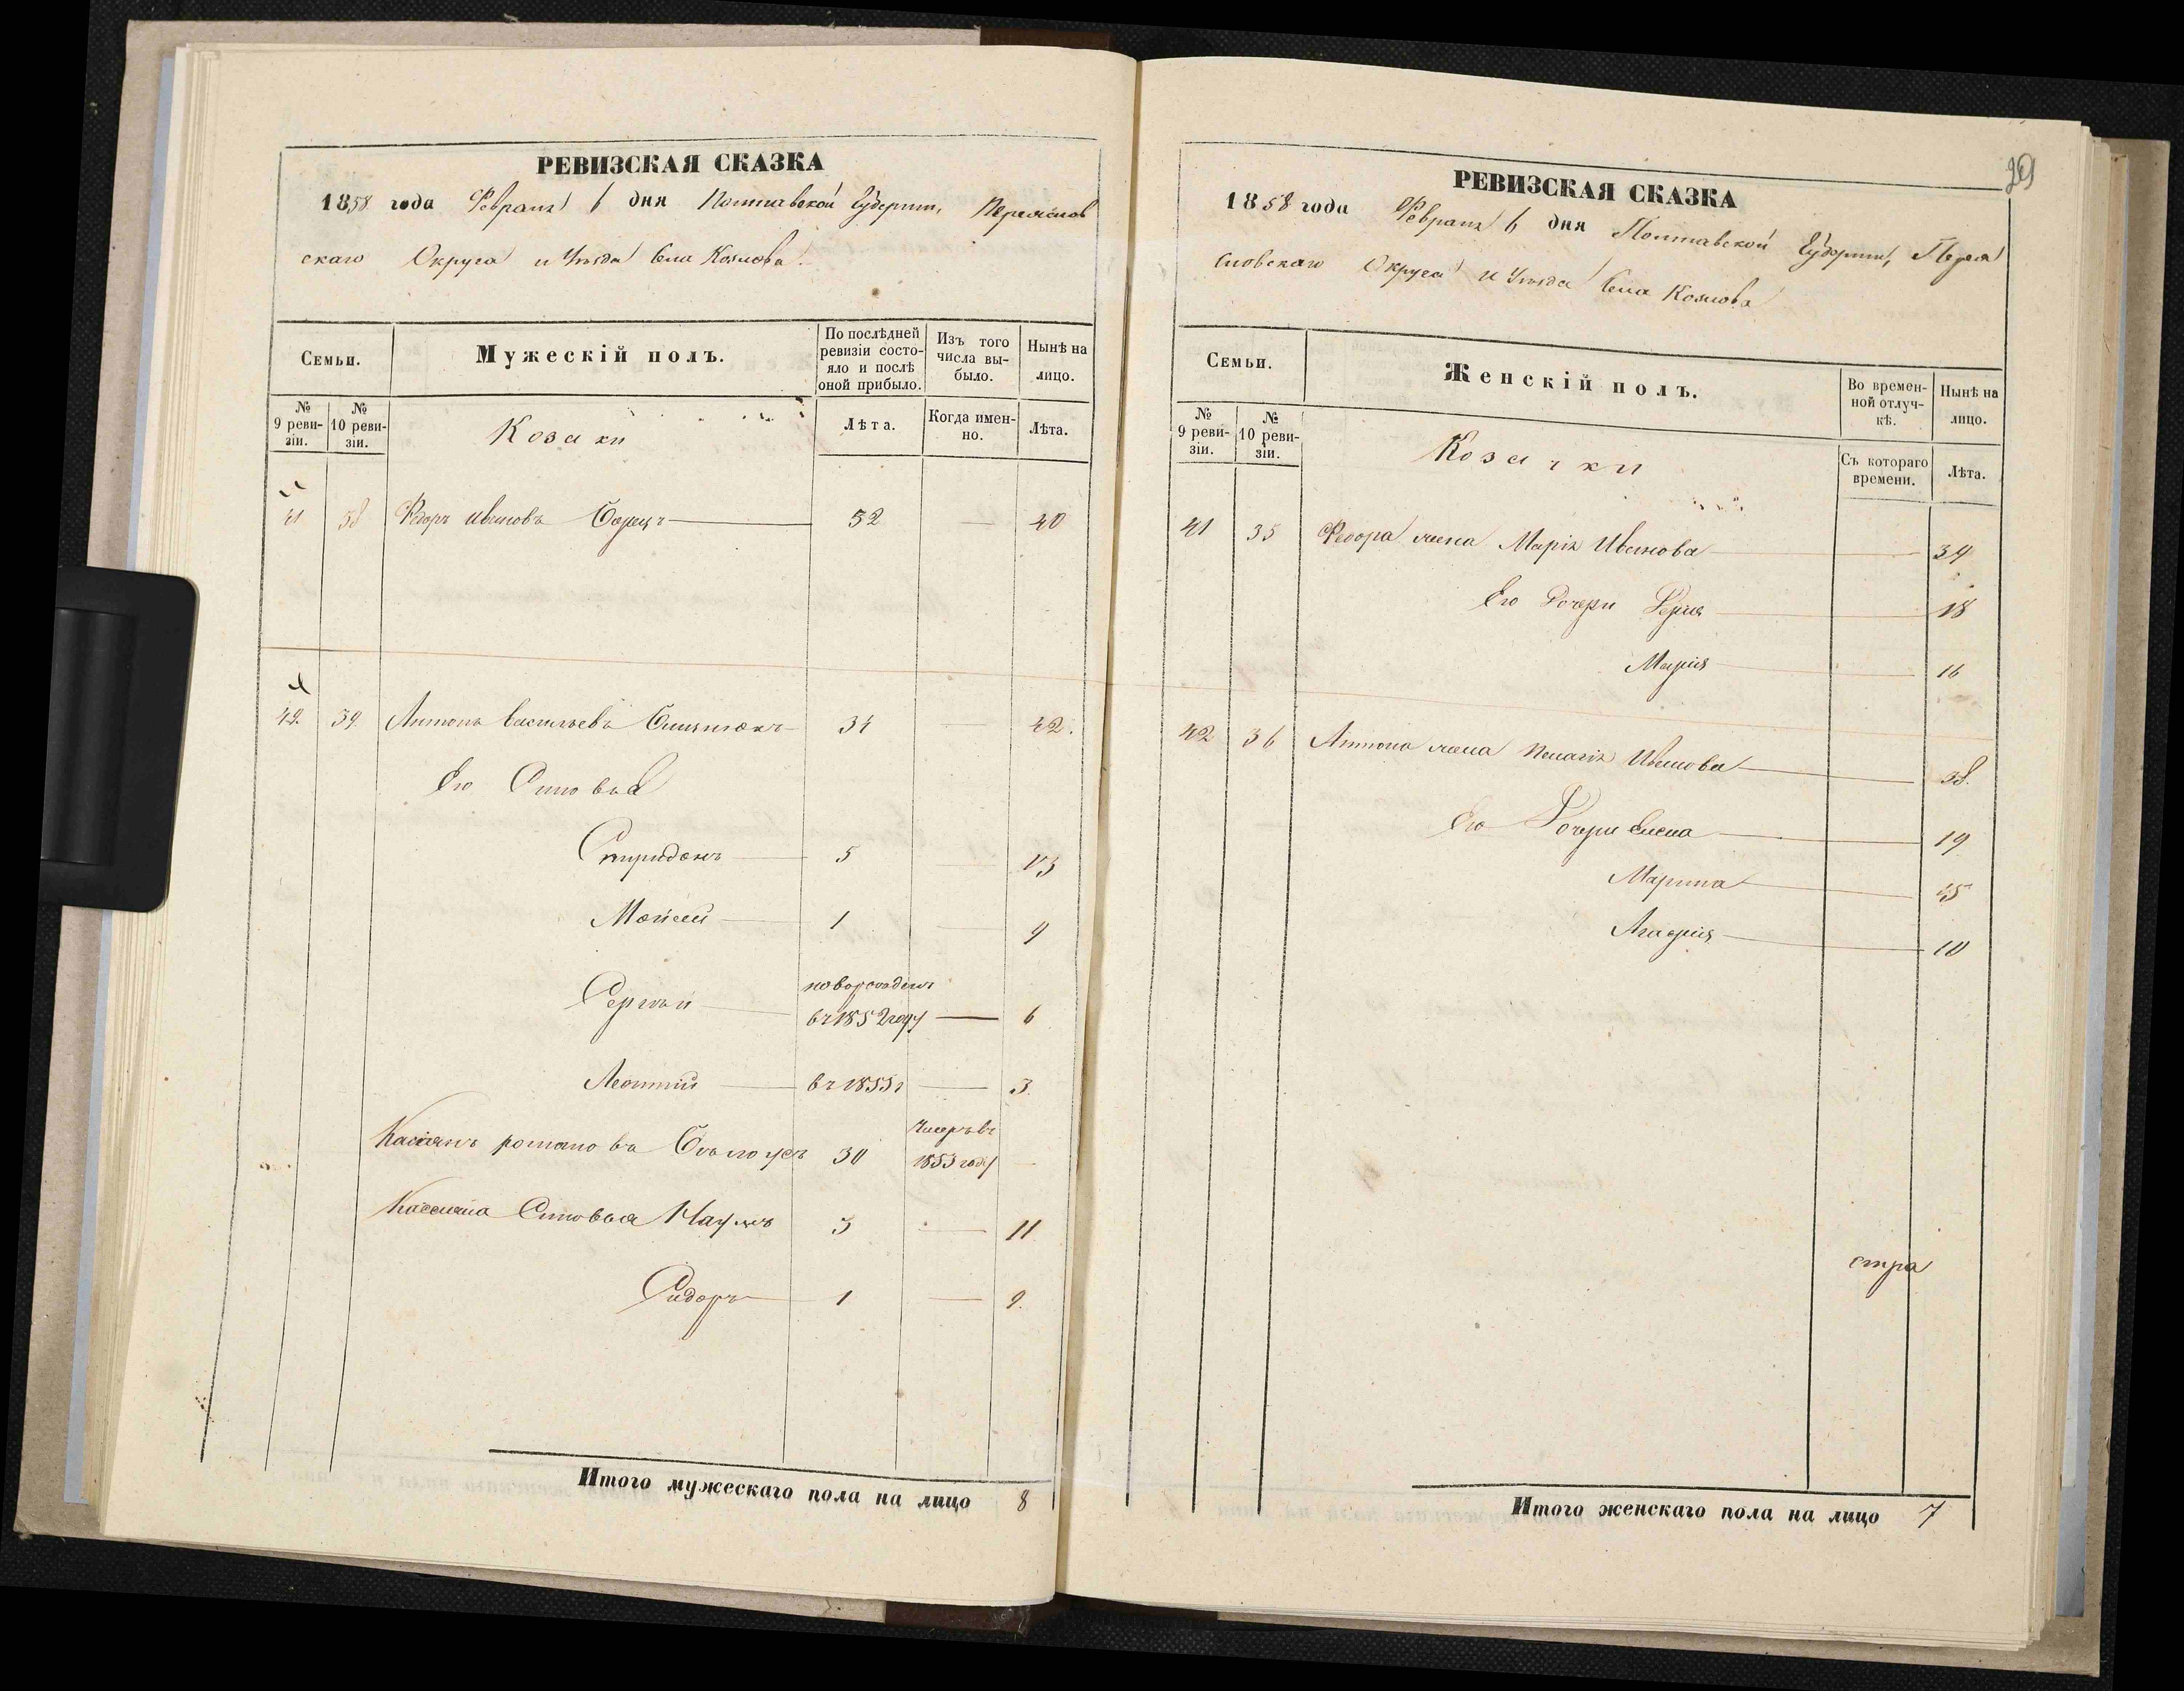 РЕВИЗСКАЯ СКАЗКА
1858 года Февраля 6 дня Полтавской Губернии, Переяслов
скаго Округа и Уѣзда Села Козлова
Семьи.
Мужескій полъ.
По послѣдней ревизіи состояло и послѣ оной прибыло.
Изъ того числа выбыло.
Нынѣ на лицо.
№ 9 ревизіи.
№ 10 ревизіи.
Козаки
Лѣта.
Когда именно.
Лѣта.
41 38 Федоръ Ивановъ 32 — 40
42. 39. Антонъ Васильевъ 34 — 42.
Его Сыновья
Спиридонъ — 5 13
Мойсей — 1 9
Сергѣй — новорожденъ въ 1852 году — 6
Леонтій — въ 1855 г — 3.
Касіянъ романовъ 30 Умеръ въ 1853 году —
Кассіяна Сыновья Наумъ 3 — 11
Сидоръ — 1 — 9.
Итого мужескаго пола на лицо 8
29
РЕВИЗСКАЯ СКАЗКА
1858 года Февраля 6 дня Полтавской Губерніи, Перея
словскаго Округа и Уѣзда Села Козлова
Семьи.
Женскій полъ.
Во временной отлучкѣ.
Нынѣ на лицо.
№ 9 ревизіи.
№ 10 ревизіи.
Козачки
Съ котораго времени.
Лѣта.
41 35 Федора жена Марія Иванова — 34
Его Дочери — 18
Марія — 16
42 36 Антона жена Пелагія Иванова — 38.
Его Дочери Елена — 19
Марина — 15
Агафія — 10
стра
Итого женскаго пола на лицо 7